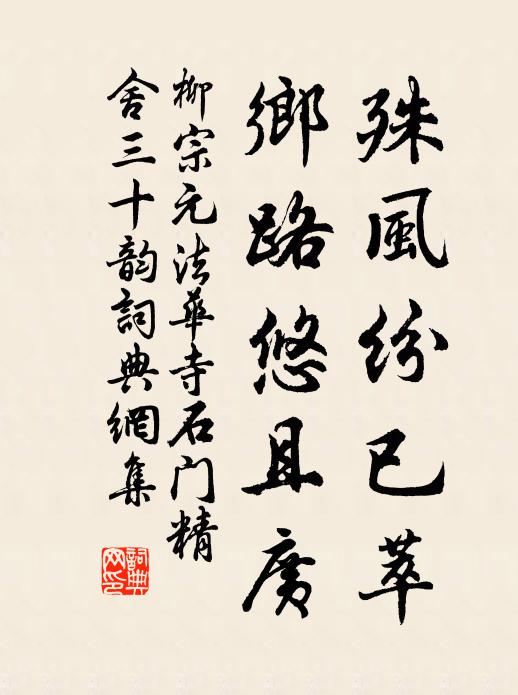 殊風紛已萃
鄉路悠且廣
柳宗元法華寺石门精
舍三十韵詞典網集
詞典
网印